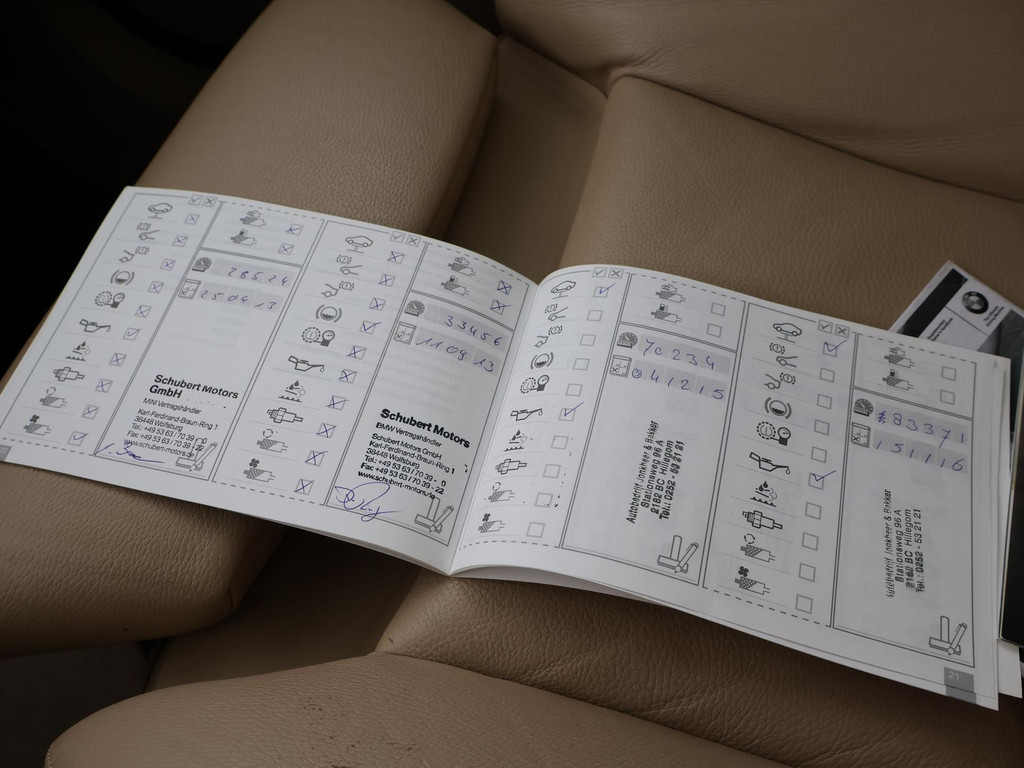 28524
250413
Schubert Motors
GmbH
MINI Vertragshändler
Karl-Ferdinand-Braun-Ring 1
38448 Wolfsburg
Tel.: +49 53 63 / 70 39 - 0
Fax +49 53 63 / 70 39 - 22
www.schubert-motors.de
33456
110913
Schubert Motors
BMW Vertragshändler
Schubert Motors GmbH
Karl-Ferdinand-Braun-Ring 1
38448 Wolfsburg
Tel.: +49 53 63 / 70 39 - 0
Fax +49 53 63 / 70 39 - 22
www.schubert-motors.de
70234
041215
Autobedrijf Jonkheer & Bakker
Stationsweg 96 A
2182 BC Hillegom
83371
151116
Autobedrijf Jonkheer & Bakker
Stationsweg 96 A
2182 BC Hillegom
Tel.: 0252 - 53 21 21
21